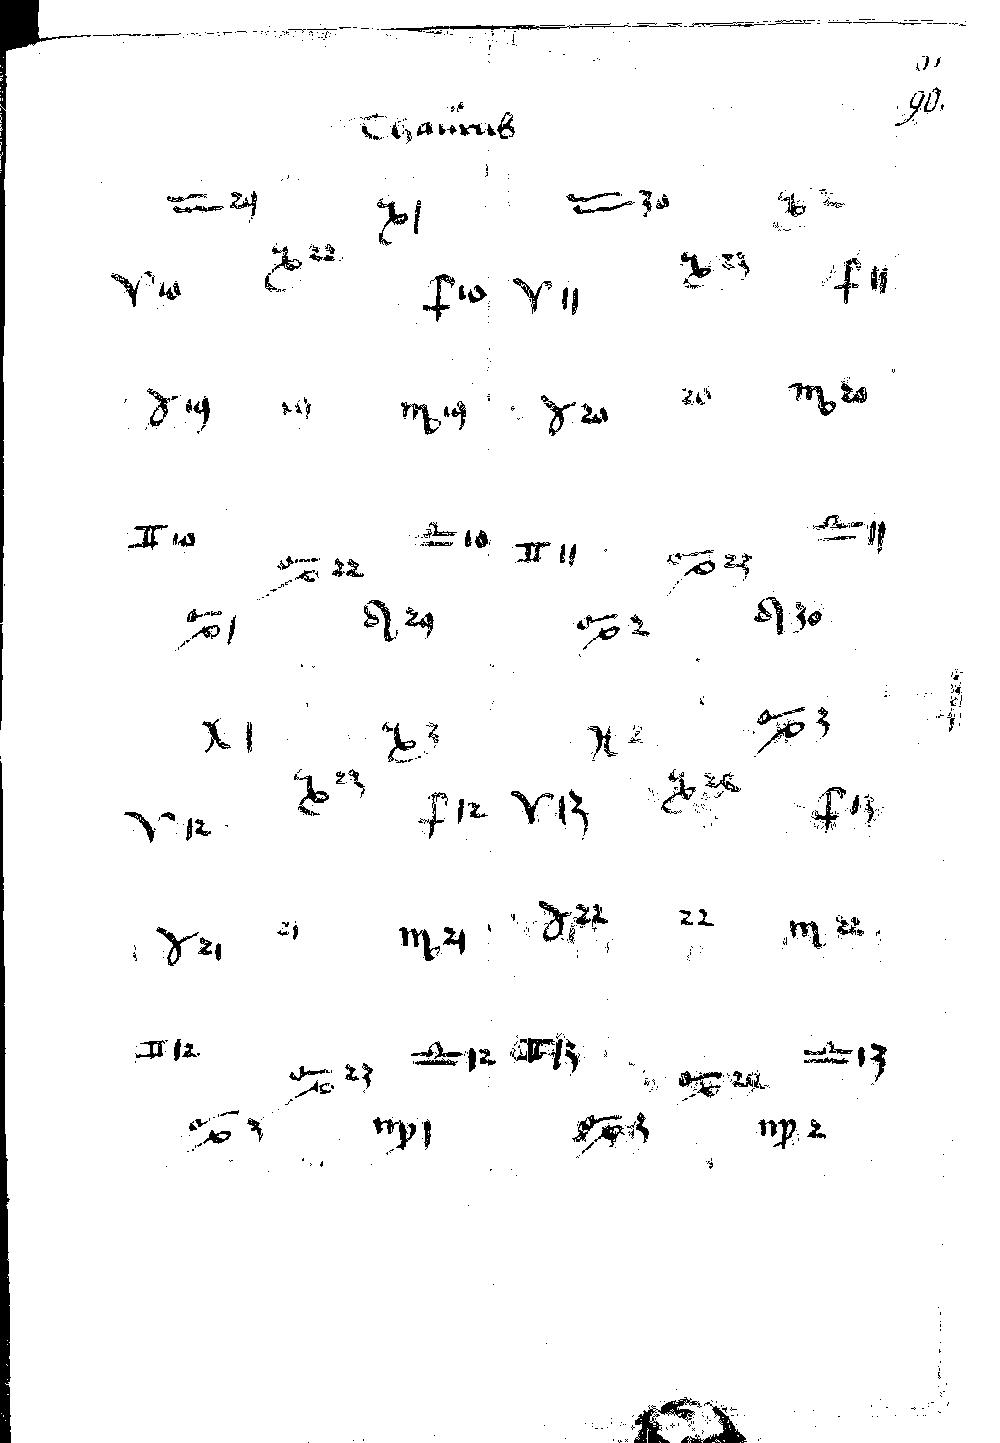 90.
Thaurus
♒ 29 ♑ 1 ♒ 30 ♑ 2
♑ 22 ♑ 23
♈ 10 ♐ 10 ♈ 11 ♐ 11
♉ 19 19 ♏ 19 ♉ 20 20 ♏ 20
♊ 10 ♎ 10 ♊ 11 ♎ 11
♋ 22 ♋ 23
♋ 1 ♌ 29 ♋ 2 ♌ 30
♓ 1 ♑ 3 ♓ 2 ♋ 3
♑ 23 ♑ 24
♈ 12 ♐ 12 ♈ 13 ♐ 13
♉ 21 21 ♏ 21 ♉ 22 22 ♏ 22
♊ 12 ♎ 12 ♊ 13 ♎ 13
♋ 23 ♋ 24
♋ 3 ♍ 1 ♋ 3 ♍ 2